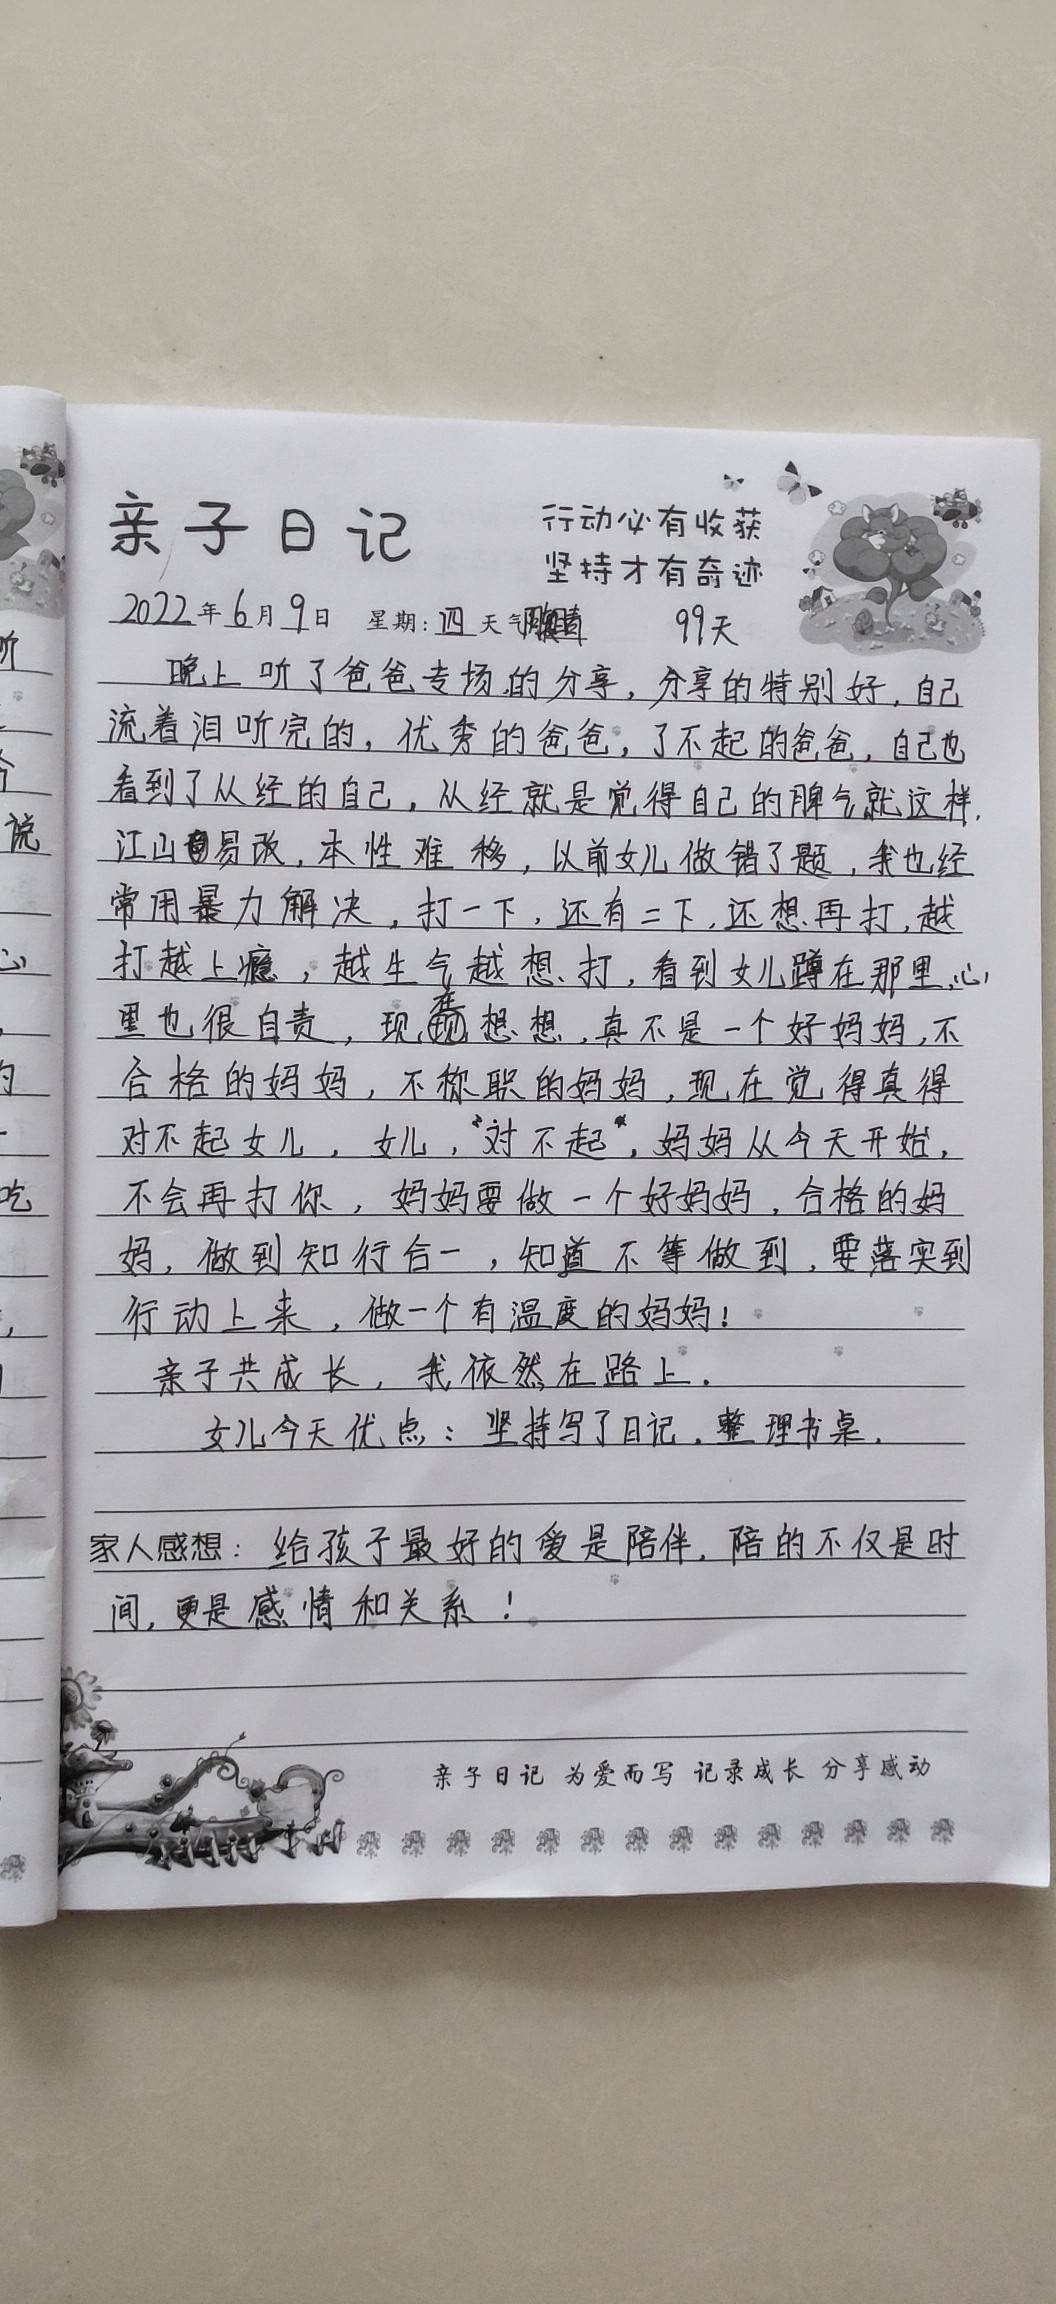 亲子日记
行动必有收获
坚持才有奇迹
2022年6月9日 星期:四 天气 99天
晚上听了爸爸专场的分享,分享的特别好,自己
流着泪听完的,优秀的爸爸,了不起的爸爸,自己也
看到了从经的自己,从经就是觉得自己的脾气就这样,
江山易改,本性难移,以前女儿做错了题,我也经
常用暴力解决,打一下,还有二下,还想再打,越
打越上瘾,越生气越想打,看到女儿蹲在那里,心
里也很自责,现在想想,真不是一个好妈妈,不
合格的妈妈,不称职的妈妈,现在觉得真得
对不起女儿,女儿,“对不起”,妈妈从今天开始,
不会再打你,妈妈要做一个好妈妈,合格的妈
妈,做到知行合一,知道不等做到,要落实到
行动上来,做一个有温度的妈妈!
亲子共成长,我依然在路上.
女儿今天优点:坚持写了日记.整理书桌.
家人感想:给孩子最好的爱是陪伴.陪的不仅是时
间,更是感情和关系!
亲子日记 为爱而写 记录成长 分享感动
听
个
说
心
的
吃